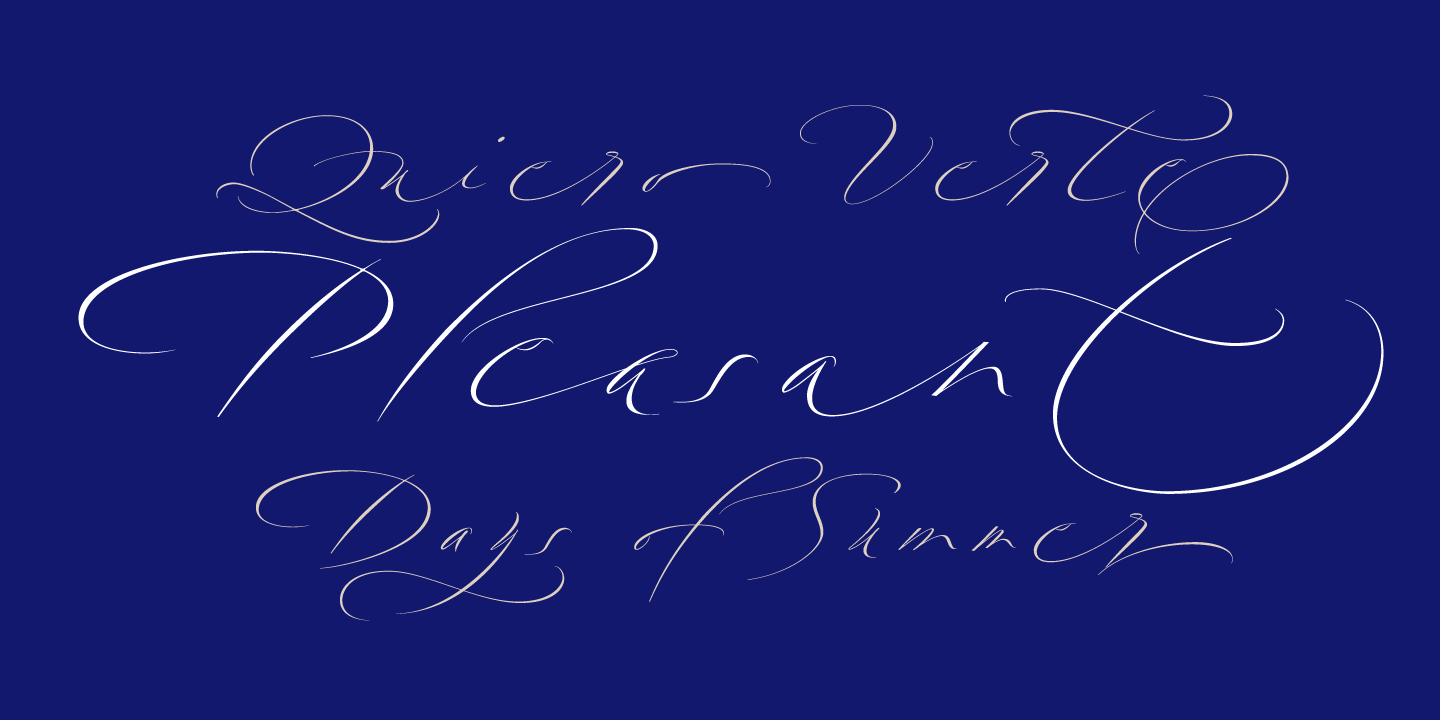 Quiero Verte
Pleasant
Days of Summer